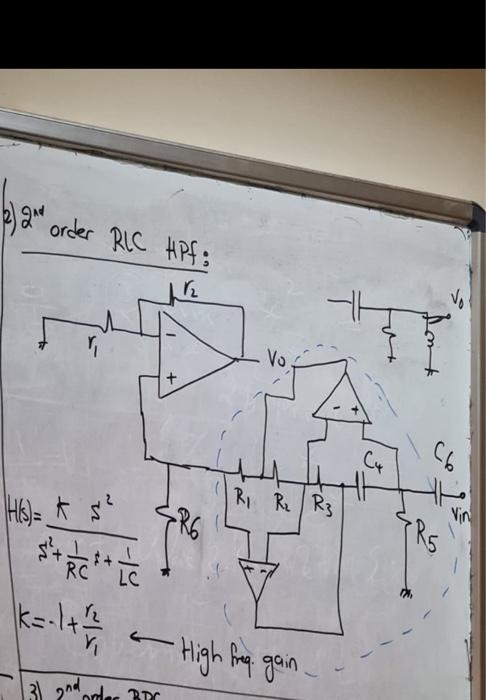 2) 2nd order RLC HPf:
r2
r1
-
+
Vo
Vo
- +
C4
C6
Vin
R1
R2
R3
R6
R5
+ -
H(s) = K s² / s² + 1/RC s + 1/LC
K = -1 + r2/r1 ← High freq. gain
3) 2nd order BPF